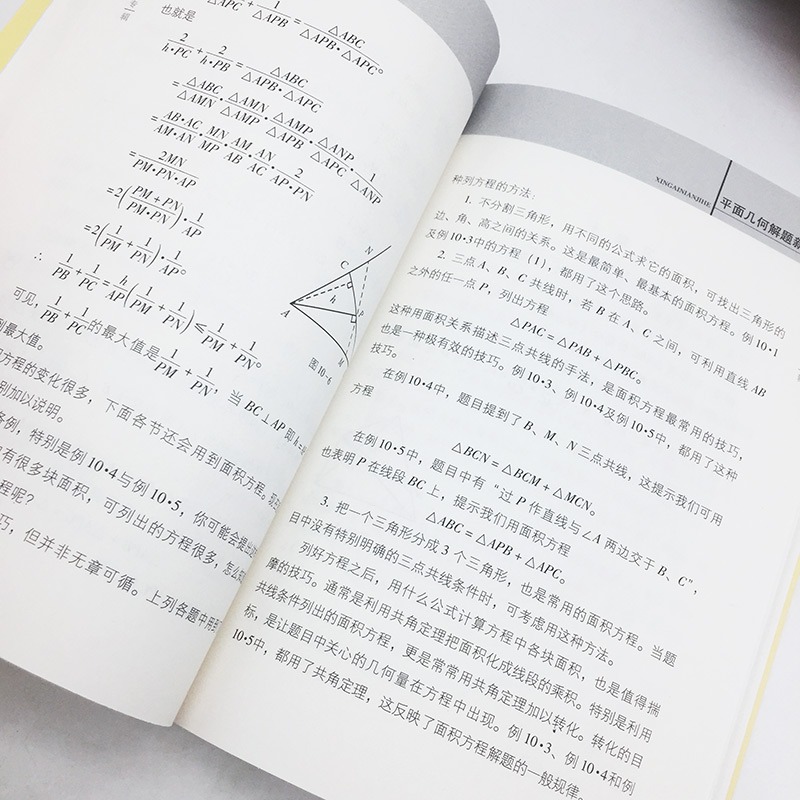 专辑
也就是
△APC + 1/△APB = △ABC/(△APB·△APC)。
2/(h·PC) + 2/(h·PB) = △ABC/(△APB·△APC)
= △ABC/△AMN · △AMN/△AMP · △AMP/△APB · △ANP/△APC · 1/△ANP
= AB·AC/(AM·AN) · MN/MP · AM/AB · AN/AC · 2/(AP·PN)
= 2MN/(PM·PN·AP)
= 2((PM + PN)/(PM·PN)) · 1/AP
= 2(1/PM + 1/PN) · 1/AP。
∴ 1/PB + 1/PC = h/AP (1/PM + 1/PN) ≤ 1/PM + 1/PN。
可见, 1/PB + 1/PC 的最大值是 1/PM + 1/PN, 当 BC⊥AP 即 h =
到最大值。
方程的变化很多,下面各节还会用到面积方程。
别加以说明。
各例,特别是例 10·4与例 10·5,你可能会提出
有很多块面积,可列出的方程很多,怎么
程呢?
巧,但并非无章可循。上列各题中用到
N
C
h
A
P
B
M
图 10-6
XINGAINIANJIHE
平面几何解题新
种列方程的方法:
1. 不分割三角形,用不同的公式求它的面积,可找出三角形的
边、角、高之间的关系。这是最简单、最基本的面积方程。例 10·1
及例 10·3中的方程(1),都用了这个思路。
2. 三点 A、B、C 共线时,若 B 在 A、C 之间,可利用直线 AB
之外的任一点 P,列出方程
△PAC = △PAB + △PBC。
这种用面积关系描述三点共线的手法,是面积方程最常用的技巧,
也是一种极有效的技巧。例 10·3、例 10·4及例 10·5中,都用了这种
技巧。
在例 10·4中,题目提到了 B、M、N 三点共线,这提示我们可用
方程
△BCN = △BCM + △MCN。
在例 10·5中,题目中有“过 P 作直线与∠A 两边交于 B、C”,
也表明 P 在线段 BC 上,提示我们用面积方程
△ABC = △APB + △APC。
3. 把一个三角形分成 3 个三角形,也是常用的面积方程。当题
目中没有特别明确的三点共线条件时,可考虑用这种方法。
列好方程之后,用什么公式计算方程中各块面积,也是值得揣
摩的技巧。通常是利用共角定理把面积化成线段的乘积。特别是利用
共线条件列出的面积方程,更是常常用共角定理加以转化。转化的目
标,是让题目中关心的几何量在方程中出现。例 10·3、例 10·4和例
10·5中,都用了共角定理,这反映了面积方程解题的一般规律。